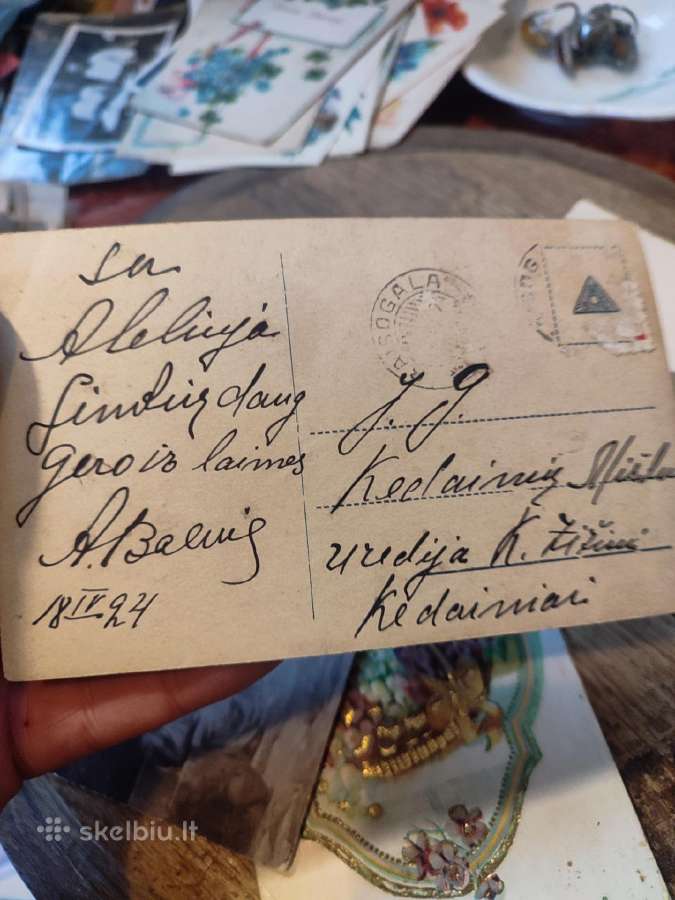 su
Aleliuja
Linkiu daug
gero ir laimės
A. Balčius
18 IV 24
BAISOGALA
J. G.
Kedainių
Urėdija K. Žižmi
Kėdainiai
skelbiu.lt